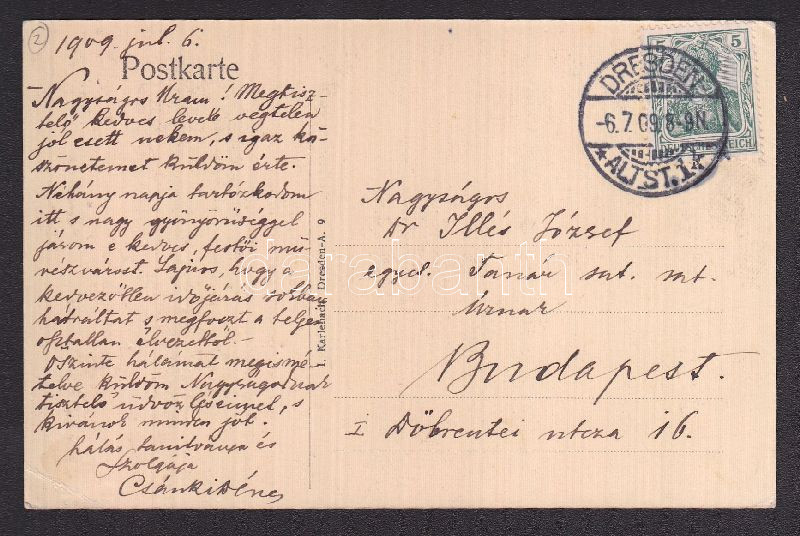 2
1909. jul. 6.
Postkarte
Nagyságos Uram! Megtisz-
telő kedves levele végtelen
jól esett nekem, s igaz kö-
szönetemet küldöm érte.
Néhány napja tartózkodom
itt s nagy gyönyörüséggel
járom e kedves, festői mű-
vészvárost. Sajnos, hogy a
kedvezőtlen időjárás sokban
hátráltat s megfoszt a teljes
élvezettől.-
Őszinte hálámat megismé-
telve küldöm Nagyságodnak
tisztelő üdvözléseimet, s
kivánok minden jót.
hálás tanitványa és
szolgája
Csánki Dénes
I. Karlebach, Dresden-A. 9
5 5
REICH
DRESDEN-
-6.7.09.8-9N.
*ALTST.1*
Nagyságos
Dr Illés József
egyet. Tanár
úrnak
Budapest.
I Döbrentei utcza 16.
darabanth